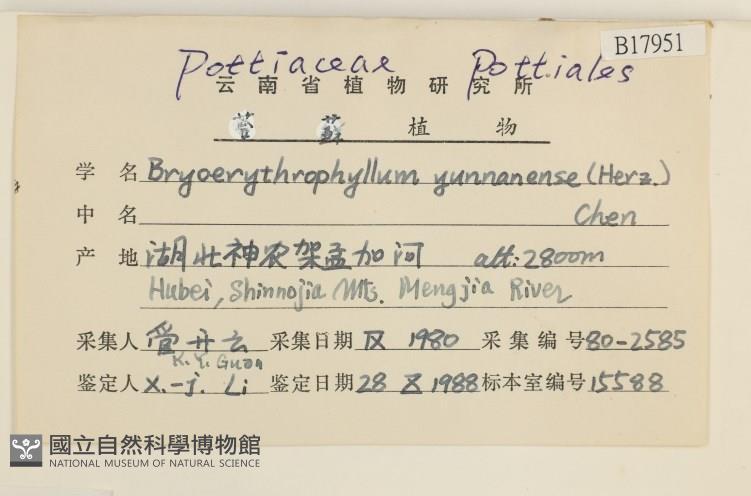 B17951
Pottiaceae Pottiales
云南省植物研究所
苔藓植物
学名 Bryoerythrophyllum yunnanense (Herz.)
中名 Chen
产地 湖北神农架孟加河 alt: 2800m
Hubei, Shinnojia Mts. Mengjia River
采集人 管开云 采集日期 IX 1980 采集编号 80-2585
K. Y. Guan
鉴定人 X.-j. Li 鉴定日期 28 X 1988 标本室编号 15588
國立自然科學博物館
NATIONAL MUSEUM OF NATURAL SCIENCE